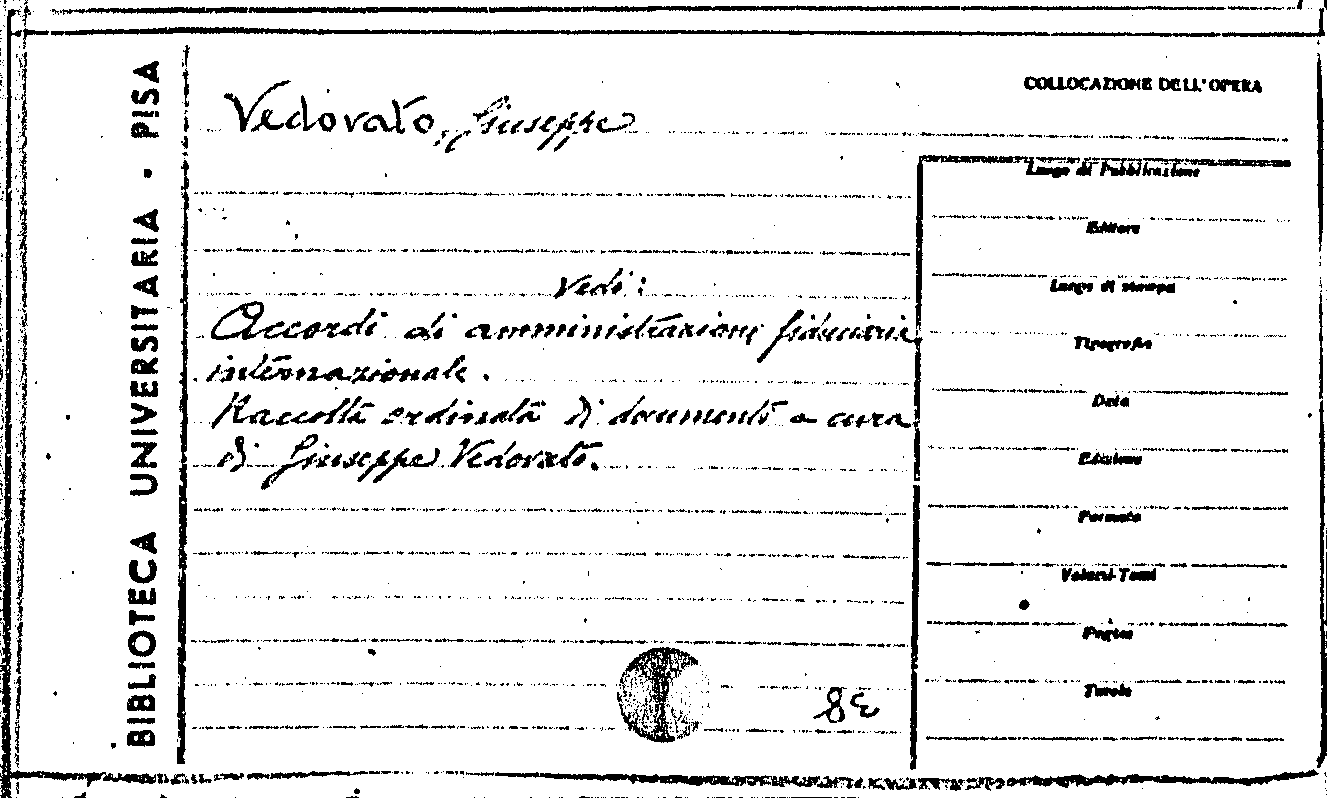 BIBLIOTECA UNIVERSITARIA - PISA
COLLOCAZIONE DELL'OPERA
Vedovato, Giuseppe
Vedi:
Accordi di amministrazione fiduciaria
internazionale.
Raccolta ordinata di documenti a cura
di Giuseppe Vedovato.
Luogo di Pubblicazione
Editore
Luogo di stampa
Tipografia
Data
Edizione
Formato
Volumi-Tomi
Pagine
Tavole